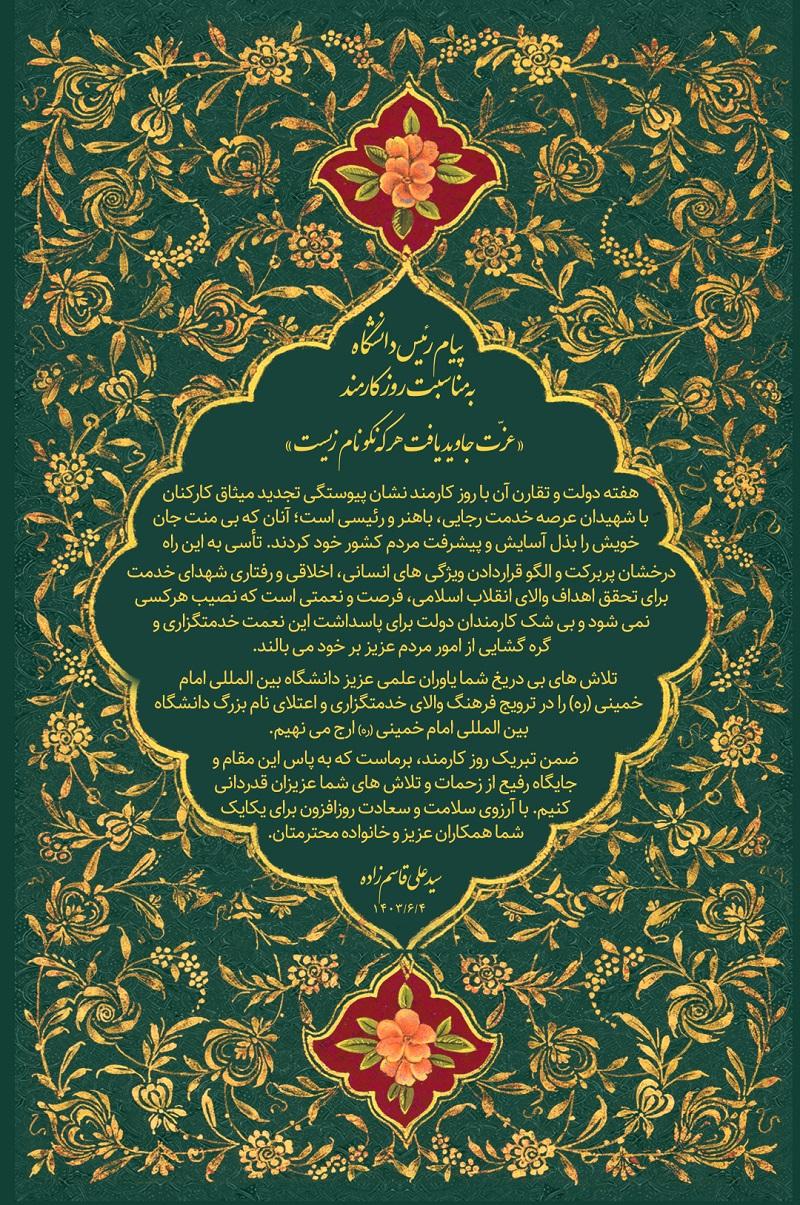 پیام رئیس دانشگاه
به مناسبت روز کارمند
«عزّت جاوید یافت هر که نکونام زیست»
هفته دولت و تقارن آن با روز کارمند نشان پیوستگی تجدید میثاق کارکنان
با شهیدان عرصه خدمت رجایی، باهنر و رئیسی است؛ آنان که بی منت جان
خویش را بذل آسایش و پیشرفت مردم کشور خود کردند. تأسی به این راه
درخشان پربرکت و الگو قراردادن ویژگی های انسانی، اخلاقی و رفتاری شهدای خدمت
برای تحقق اهداف والای انقلاب اسلامی، فرصت و نعمتی است که نصیب هرکسی
نمی شود و بی شک کارمندان دولت برای پاسداشت این نعمت خدمتگزاری و
گره گشایی از امور مردم عزیز بر خود می بالند.
تلاش های بی دریغ شما یاوران علمی عزیز دانشگاه بین المللی امام
خمینی (ره) را در ترویج فرهنگ والای خدمتگزاری و اعتلای نام بزرگ دانشگاه
بین المللی امام خمینی (ره) ارج می نهیم.
ضمن تبریک روز کارمند، برماست که به پاس این مقام و
جایگاه رفیع از زحمات و تلاش های شما عزیزان قدردانی
کنیم. با آرزوی سلامت و سعادت روزافزون برای یکایک
شما همکاران عزیز و خانواده محترمتان.
سید علی قاسم زاده
۱۴۰۳/۶/۴